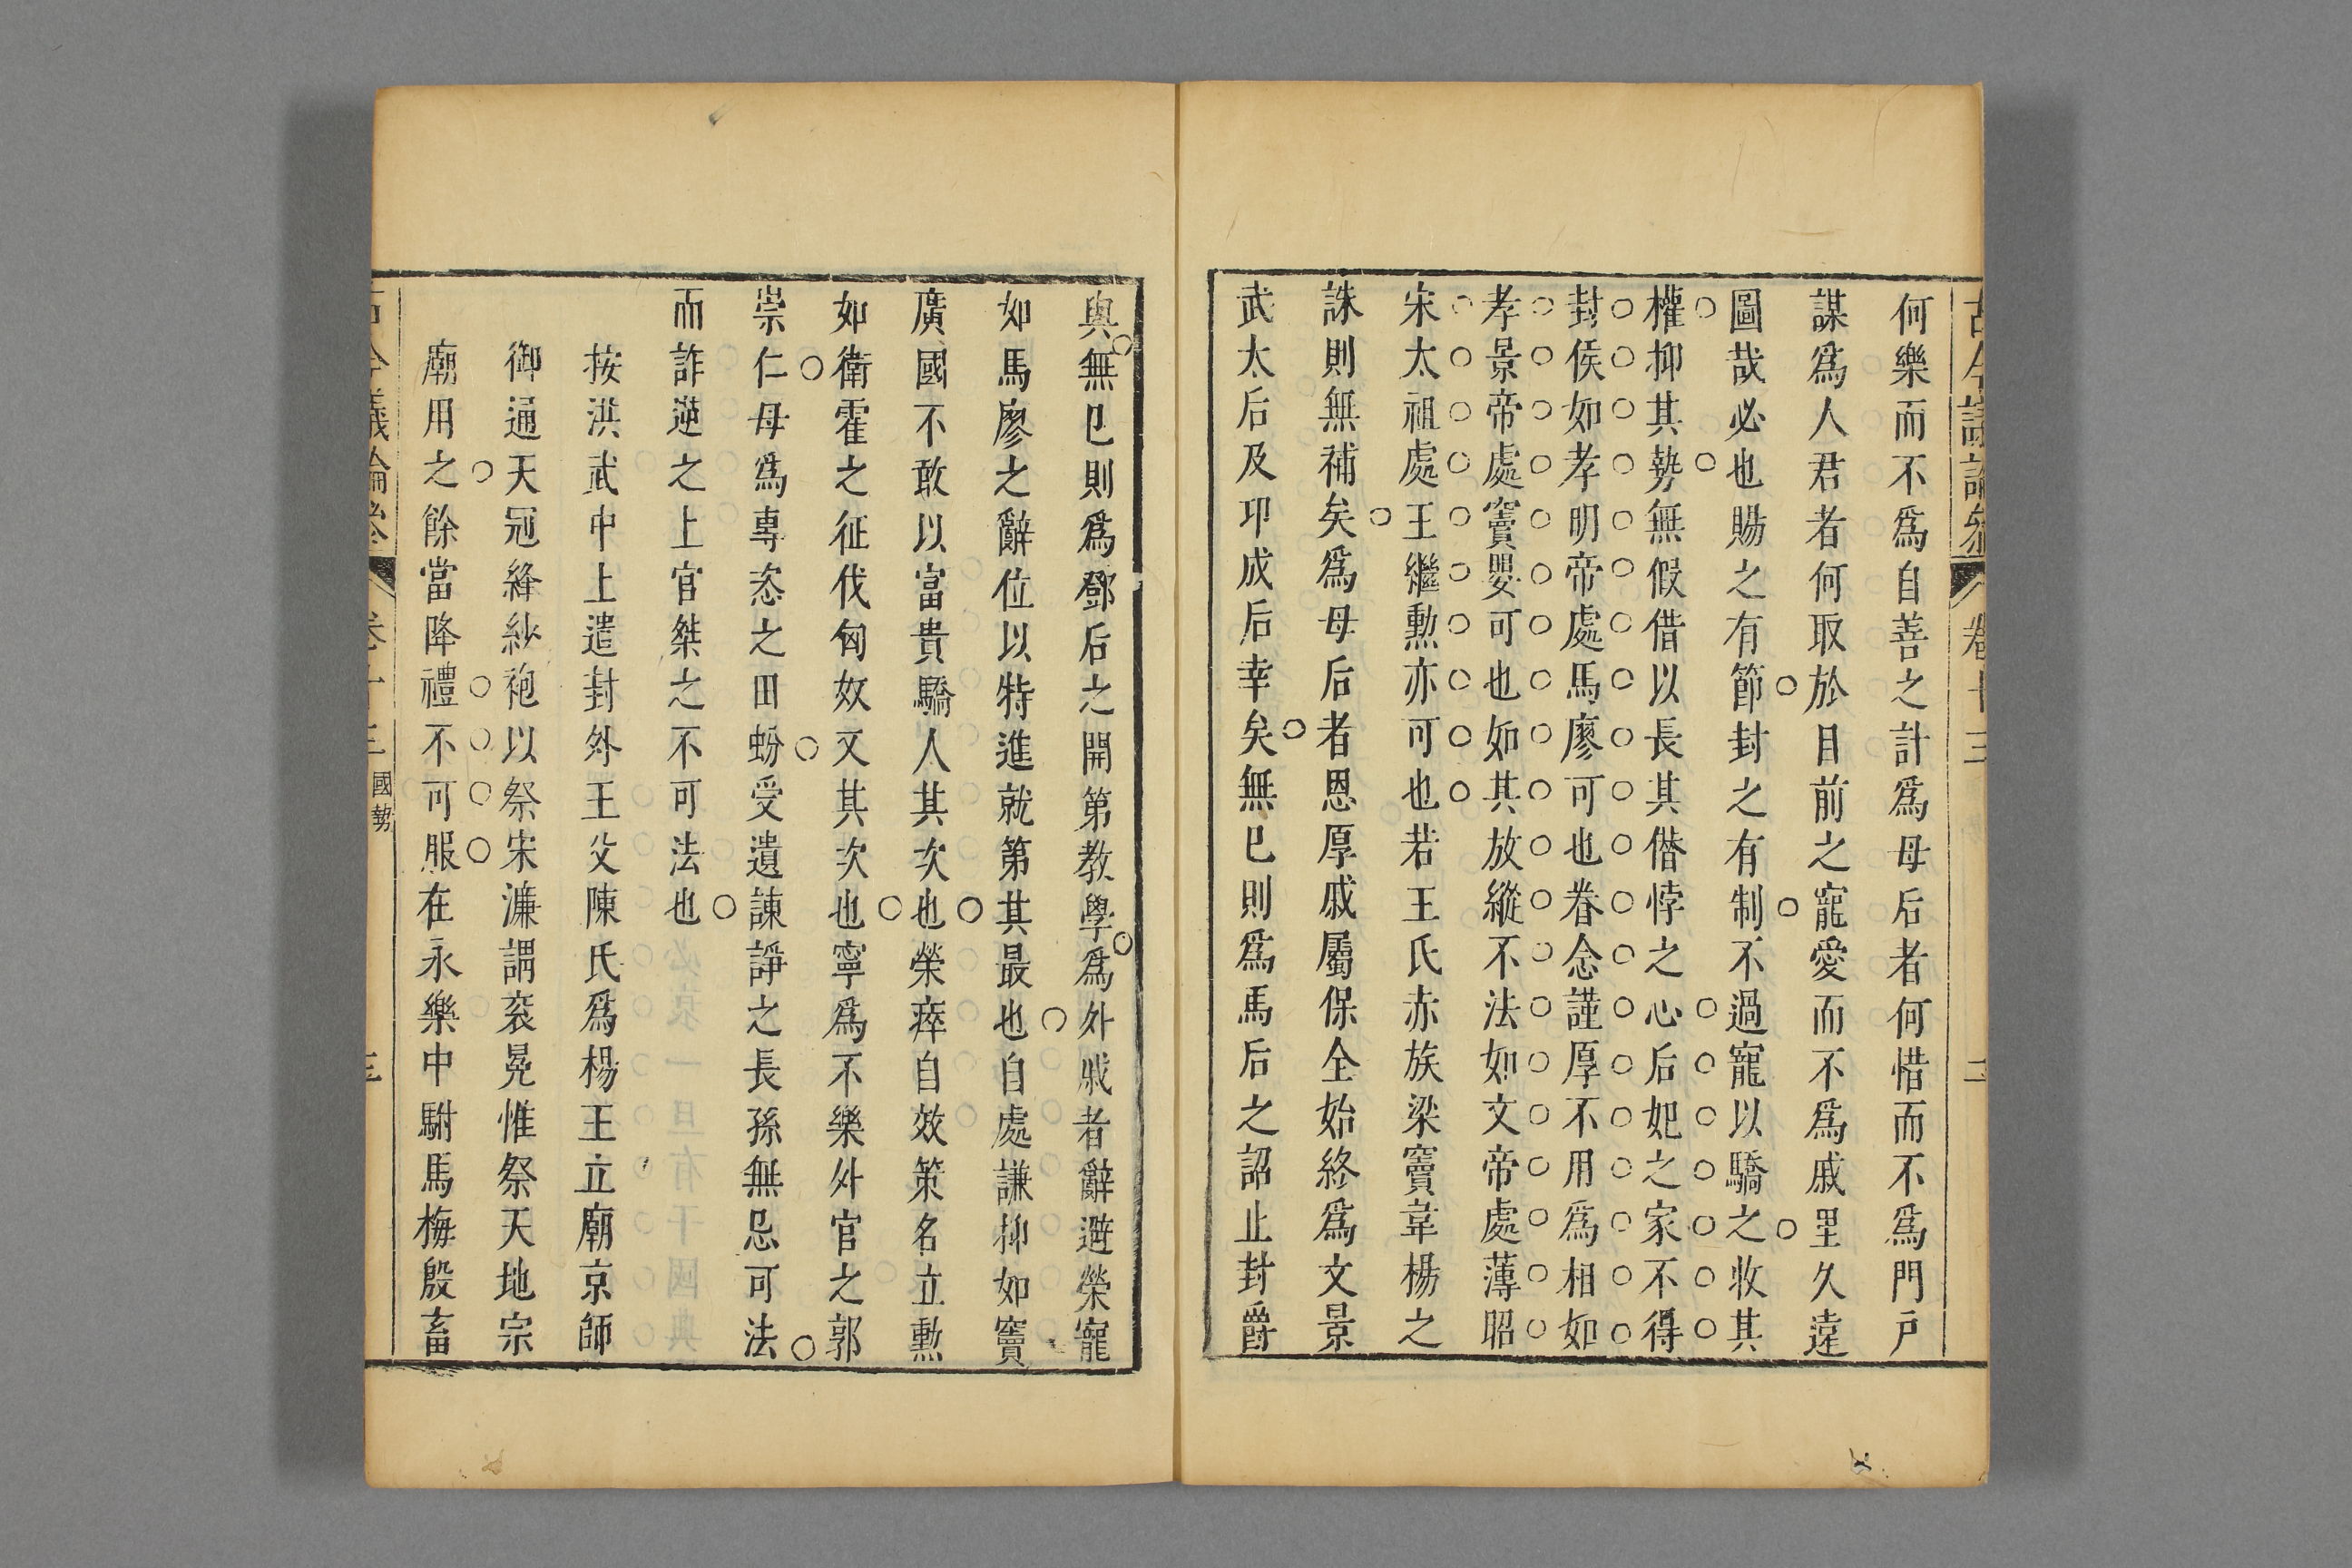 古今議論參 卷十三 二
何樂而不爲自善之計爲母后者何惜而不爲門戸
謀爲人君者何取於目前之寵愛而不爲戚里久遠
圖哉必也賜之有節封之有制不過寵以驕之收其
權抑其勢無假借以長其僭悖之心后妃之家不得
封侯如孝明帝處馬廖可也眷念謹厚不用爲相如
孝景帝處竇嬰可也如其放縱不法如文帝處薄昭
宋太祖處王繼勲亦可也若王氏赤族梁竇韋楊之
誅則無補矣爲母后者恩厚戚屬保全始終爲文景
武太后及卭成后幸矣無已則爲馬后之詔止封爵
與無已則爲鄧后之開第教學爲外戚者辭避榮寵
如馬廖之辭位以特進就第其最也自處謙抑如竇
廣國不敢以富貴驕人其次也榮瘁自效策名立勲
如衛霍之征伐匈奴又其次也寧爲不樂外官之郭
崇仁母爲專恣之田蚡受遺諫諍之長孫無忌可法
而詐逆之上官桀之不可法也
按洪武中上遣封外王父陳氏爲楊王立廟京師
御通天冠絳紗袍以祭宋濂謂袞冕惟祭天地宗
廟用之餘當降禮不可服在永樂中駙馬梅殷畜
古今議論參 卷十三 國勢 三